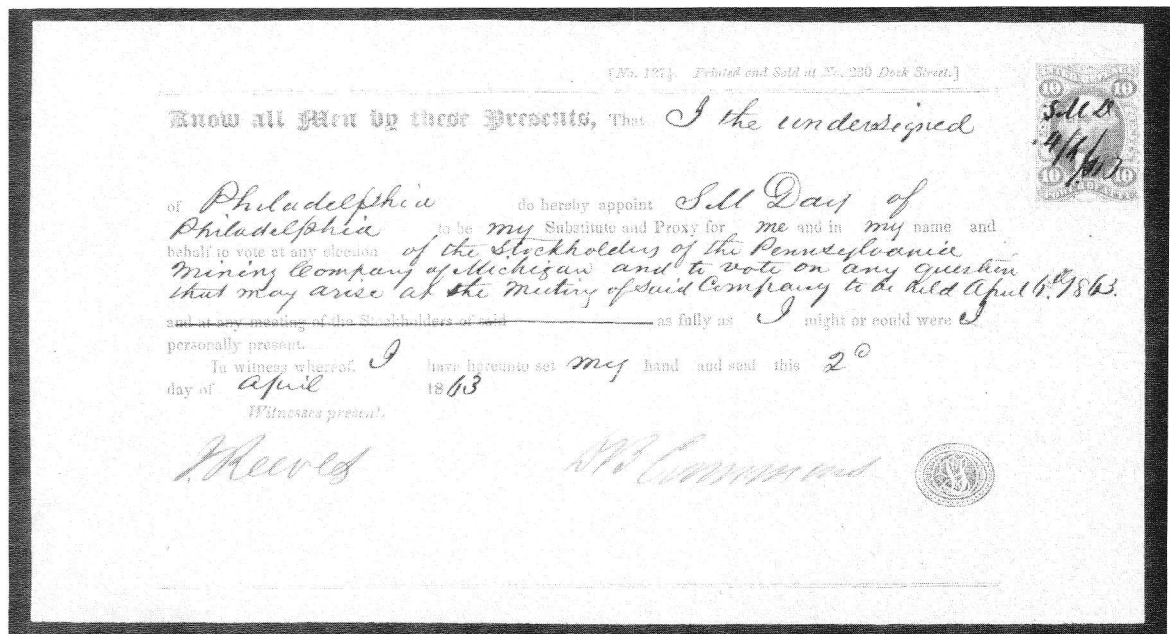 [No. 127]. Printed and Sold at No. 230 Dock Street.]
Know all Men by these Presents, That I the undersigned
10 10
S M D
10 10
of Philadelphia do hereby appoint S M Day of
Philadelphia to be my Substitute and Proxy for me and in my name and
behalf to vote at any election of the Stockholders of the Pennsylvania
Mining Company of Michigan and to vote on any question
that may arise at the Meeting of said Company to be held April 6th 1863.
and at any meeting of the Stockholders of said as fully as I might or could were I
personally present.
In witness whereof, I have hereunto set my hand and seal this 2d
day of April 1863
Witnesses present.
J. Reeves